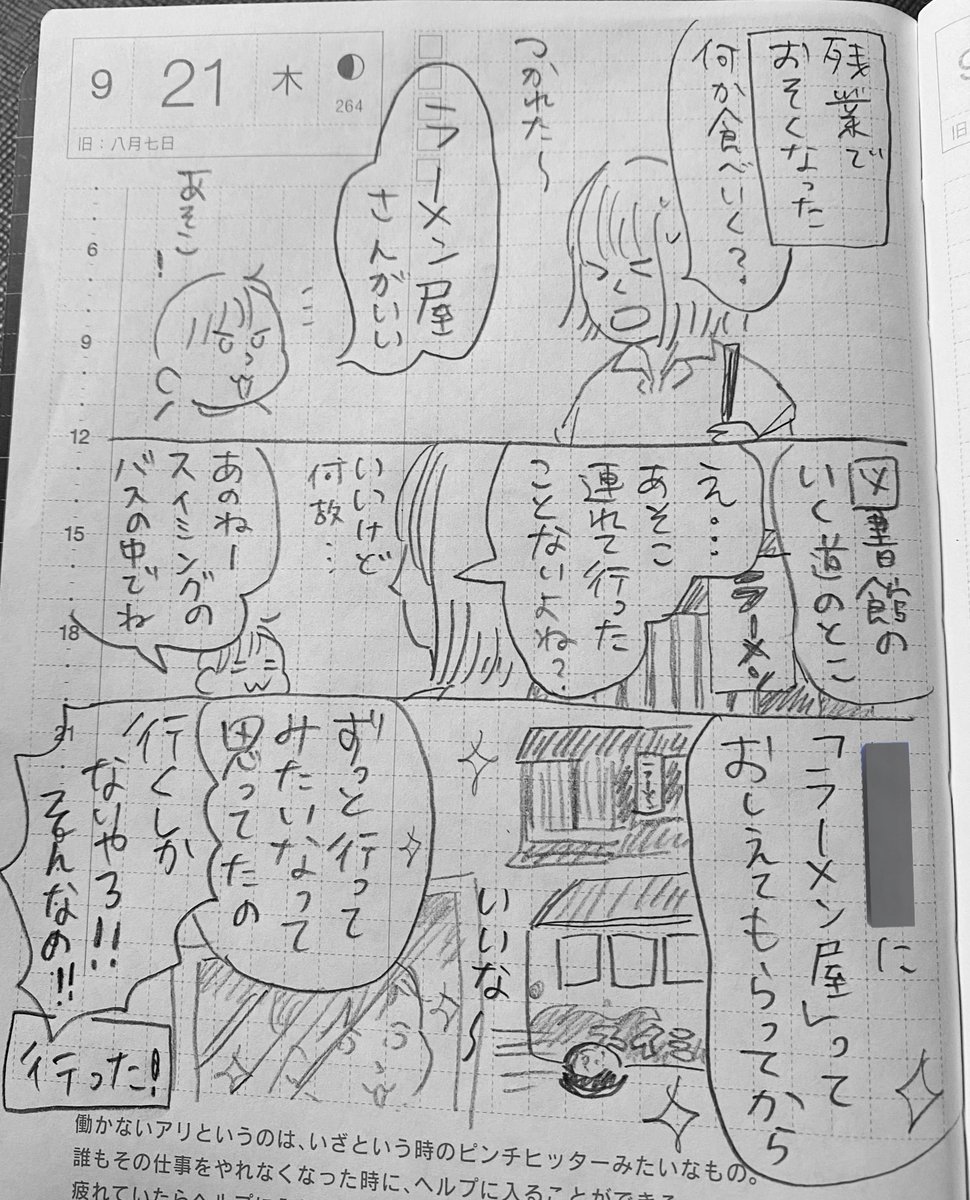 9
21
木
264
旧：八月七日
残業で
おそくなった
何か食べいく？
つかれた〜
ラーメン屋
さんがいい
あそこ！
6
9
12
15
18
21
図書館の
いく道のとこ
ラーメン
え…
あそこ
連れて行った
ことないよね？
いいけど
何故…
あのねー
スイミングの
バスの中でね
に
「ラーメン屋」って
おしえてもらってから
いいな〜
ずっと行って
みたいなって
思ってたの
行くしか
ないやろ!!
そんなの!!
行った!
働かないアリというのは、いざという時のピンチヒッターみたいなもの。
誰もその仕事をやれなくなった時に、ヘルプに入ることができる。